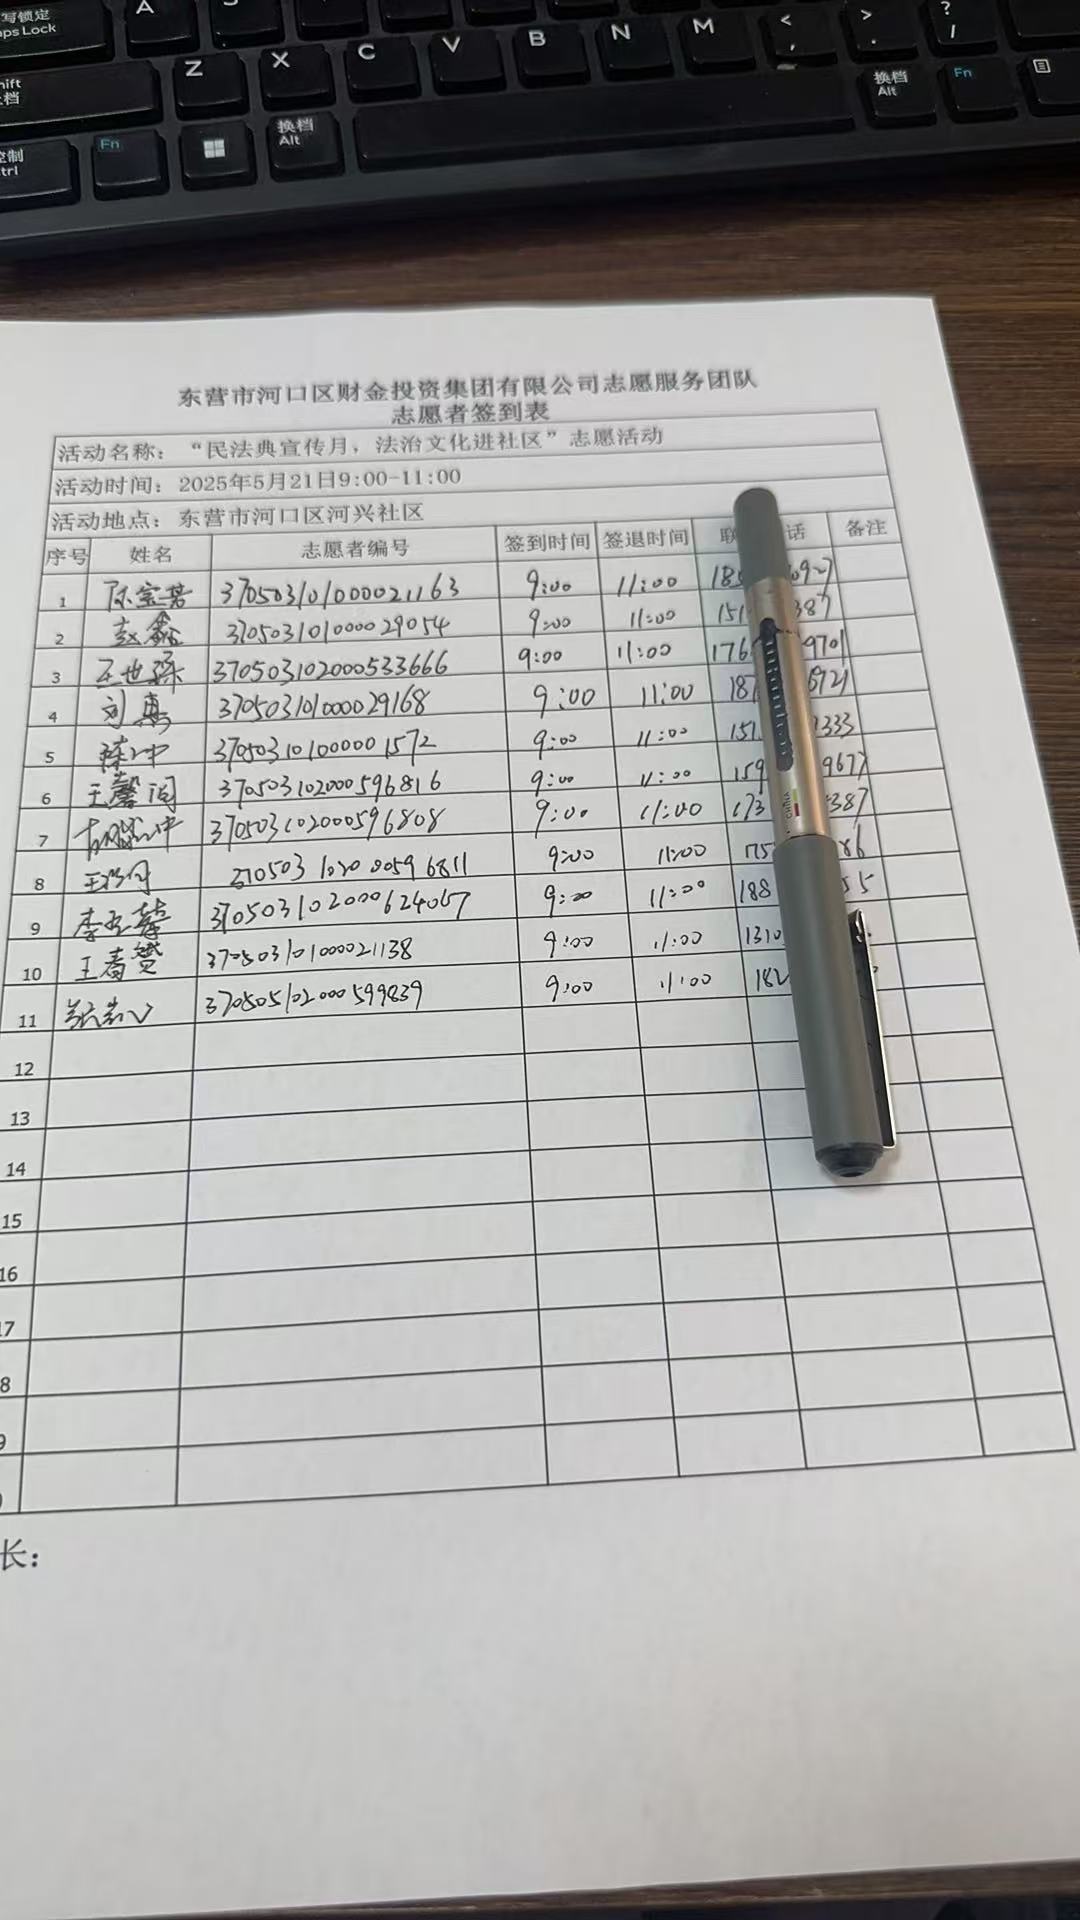 写锁定
aps Lock
A
S
<
,
>
.
?
/
hift
上档
Z
X
C
V
B
N
M
换档
Alt
Fn
控制
trl
Fn
换档
Alt
东营市河口区财金投资集团有限公司志愿服务团队
志愿者签到表
活动名称：“民法典宣传月，法治文化进社区”志愿活动
活动时间：2025年5月21日9:00-11:00
活动地点：东营市河口区河兴社区
序号 姓名 志愿者编号 签到时间 签退时间 联 话 备注
1 370503101000021163 9:00 11:00 185 0927
2 赵鑫 370503101000029054 9:00 11:00 151 387
3 370503102000533666 9:00 11:00 176 9701
4 刘真 370503101000029168 9:00 11:00 187 6721
5 370503101000001572 9:00 11:00 151 1333
6 王馨润 370503102000596816 9:00 11:00 159 9677
7 370503102000596808 9:00 11:00 173 387
8 370503102000596811 9:00 11:00 175 86
9 370503102000624067 9:00 11:00 188 55
10 王春赞 370503101000021138 9:00 11:00 1310
11 370505102000599839 9:00 11:00 182
12
13
14
15
16
7
8
9
长：
CHINA